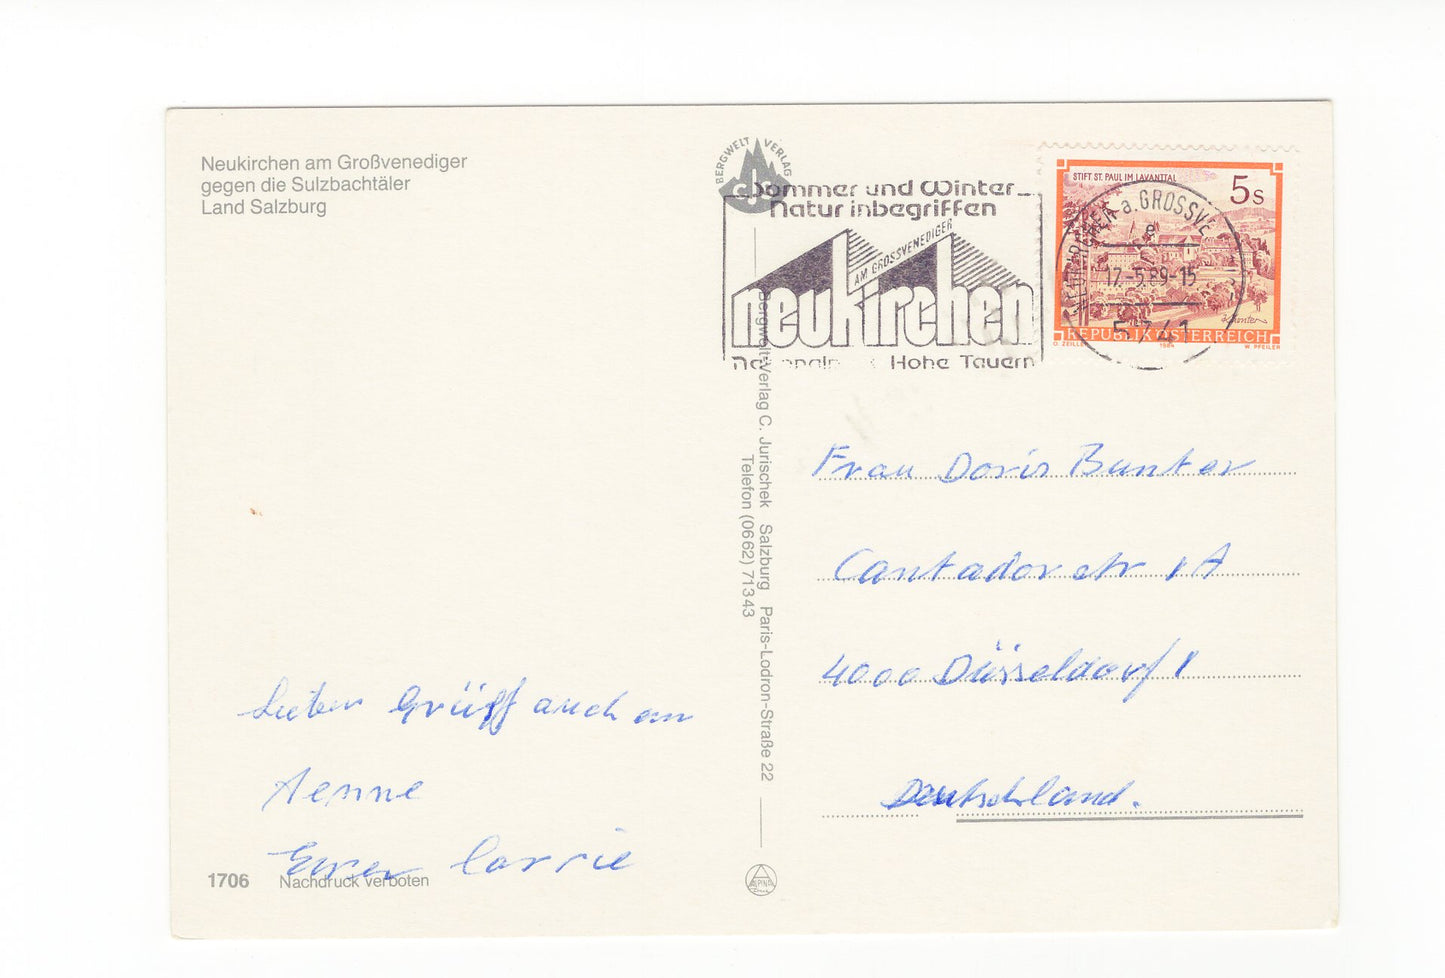 Neukirchen am Großvenediger
gegen die Sulzbachtäler
Land Salzburg
BERGWELT VERLAG
cjs
Sommer und Winter
Natur inbegriffen
AM GROSSVENEDIGER
neukirchen
Hohe Tauern
STIFT ST. PAUL IM LAVANTTAL
5s
Kärnten
REPUBLIK ÖSTERREICH
O. ZEILLER 1984 W. PFEILER
NEUKIRCHEN a. GROSSVE
17.-5.89-15
5741
Bergwelt-Verlag C. Jurischek Salzburg Paris-Lodron-Straße 22
Telefon (06 62) 71343
Frau Doris Bunter
Cantadorstr 1A
4000 Düsseldorf 1
Deutschland.
Lieben Grüß auch an
Aenne
Euer Corrie
1706 Nachdruck verboten
ALPINA